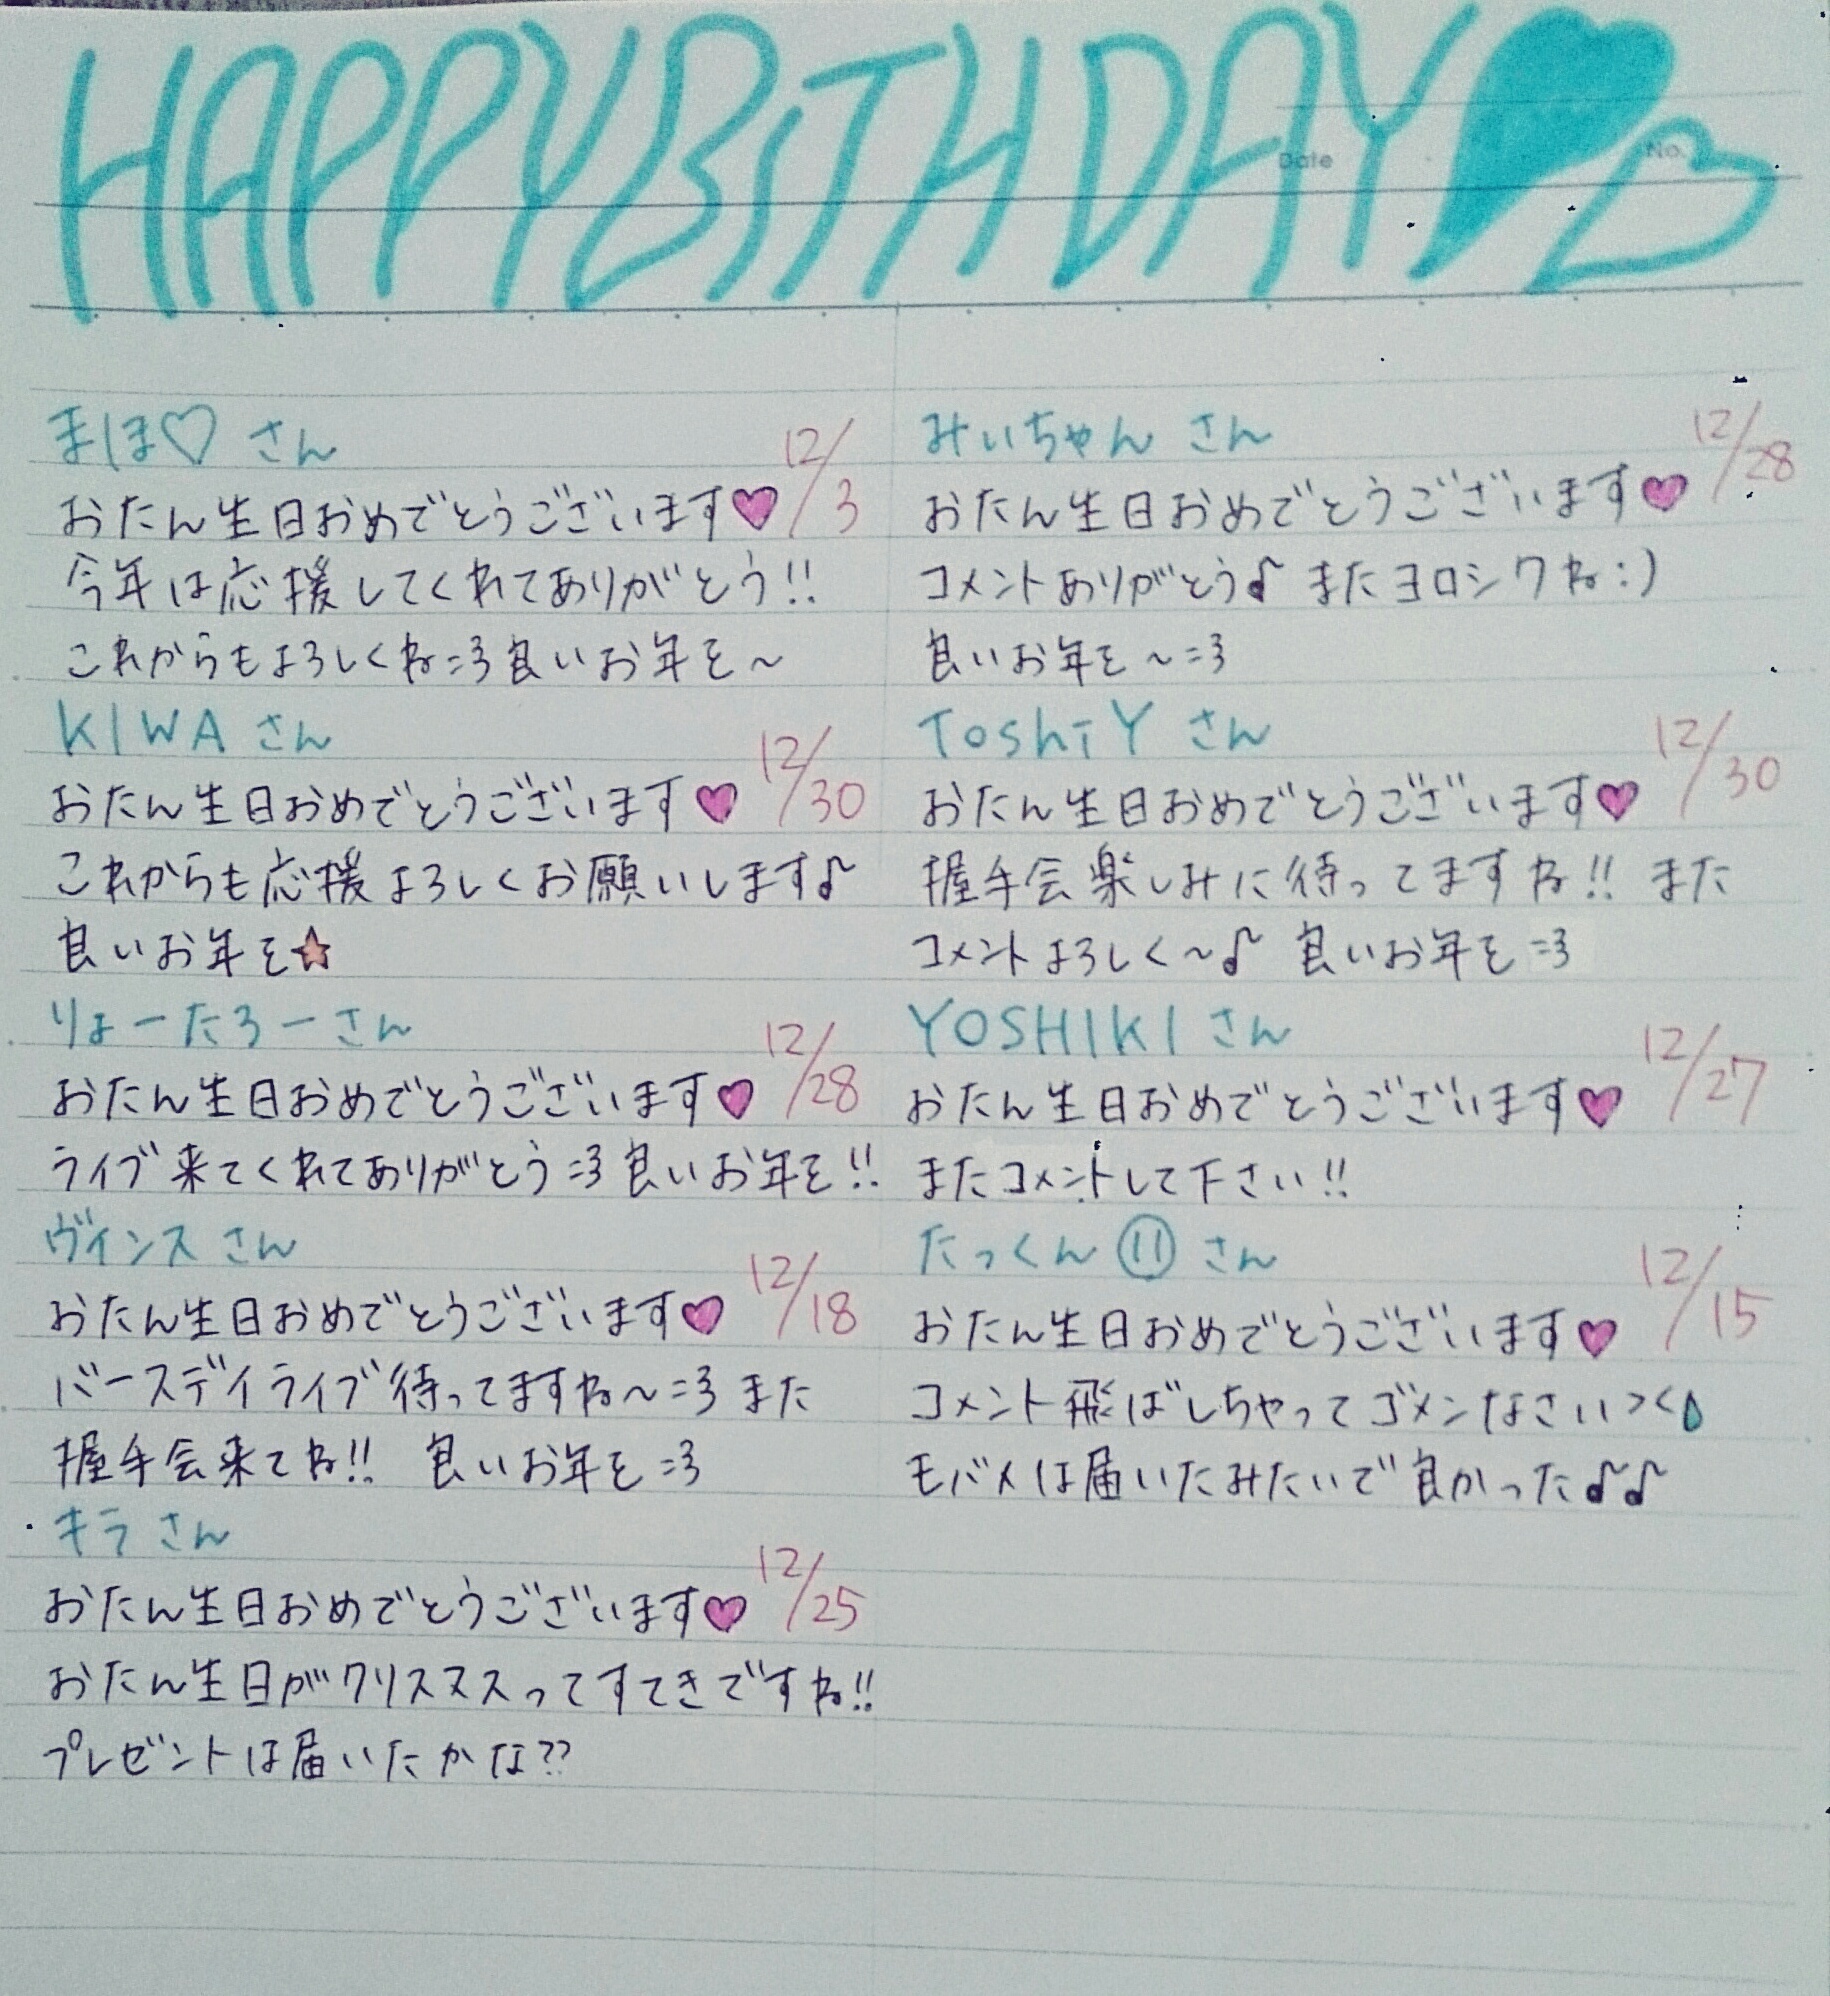 HAPPY BiTHDAY
Date
No.
まほ♡ さん 12/3
おたん生日おめでとうございます♥
今年は応援してくれてありがとう!!
これからもよろしくね=3 良いお年を～
KIWA さん 12/30
おたん生日おめでとうございます♥
これからも応援よろしくお願いします♪
良いお年を☆
りょーたろーさん 12/28
おたん生日おめでとうございます♥
ライブ来てくれてありがとう=3 良いお年を!!
ヴィンス さん 12/18
おたん生日おめでとうございます♥
バースデイライブ待ってますね～=3 また
握手会来てね!! 良いお年を=3
キラ さん 12/25
おたん生日おめでとうございます♥
おたん生日がクリスマスってすてきですね!!
プレゼントは届いたかな??
みぃちゃん さん 12/28
おたん生日おめでとうございます♥
コメントありがとう♪ またヨロシクね:)
良いお年を～=3
ToshiY さん 12/30
おたん生日おめでとうございます♥
握手会楽しみに待ってますね!! また
コメントよろしく～♪ 良いお年を=3
YOSHIKI さん 12/27
おたん生日おめでとうございます♥
またコメントして下さい!!
たっくん⑪ さん 12/15
おたん生日おめでとうございます♥
コメント飛ばしちゃってゴメンなさい><
モバメは届いたみたいで良かった♪♪